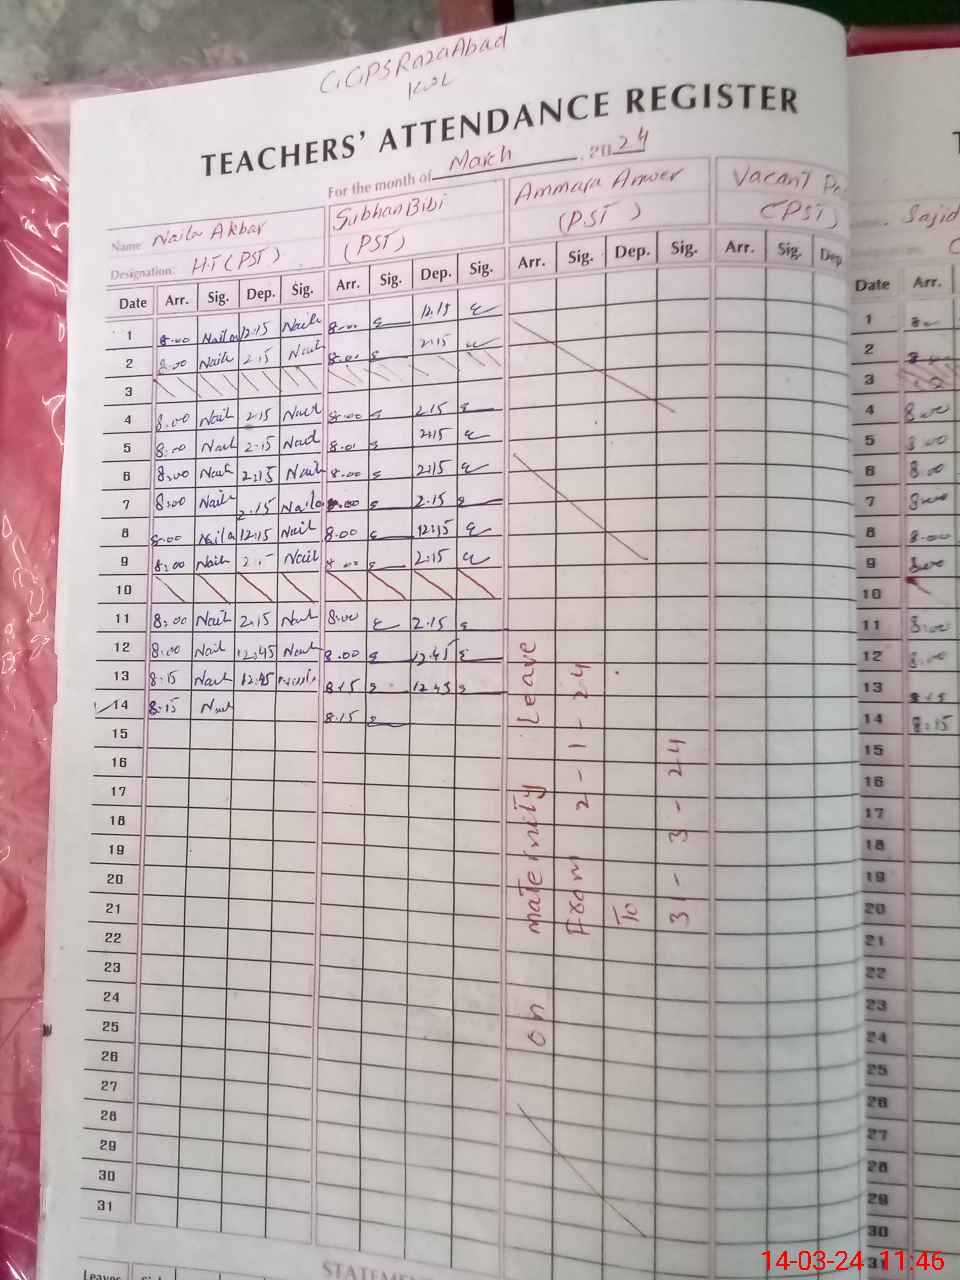 G.G.P.S Raza Abad
TEACHERS' ATTENDANCE REGISTER
For the month of March 2024
Name Naila Akbar Subhan Bibi Ammara Anwer Vacant Sajid
Designation: H.T (PST) (PST) (PST) (PST)
Date Arr. Sig. Dep. Sig. Arr. Sig. Dep. Sig. Arr. Sig. Dep. Sig. Arr. Sig. Dep Date Arr.
1 8:00 Naila 12:15 Naila 8:00 12:15 1
2 8:00 Naila 2:15 Naila 8:00 2:15 2
3 3
4 8:00 Naila 2:15 Naila 8:00 2:15 4 8:00
5 8:00 Naila 2:15 Naila 8:01 2:15 5 8:00
6 8:00 Naila 2:15 Naila 8.00 2:15 6 8:00
7 8:00 Naila 2.15 Naila 8:00 2.15 7 8:00
8 8:00 Naila 12:15 Naila 8.00 12:15 8 8:00
9 8:00 Naila Naila 2:15 9 8:00
10 10
11 8:00 Naila 2:15 Naila 8:00 2.15 11 8:00
12 8:00 Naila 12:45 Naila 8.00 12:45 12 8:00
13 8:15 Naila 12:45 Naila 8:15 12:45 13 8:15
14 8:15 Naila 8.15 14 8:15
15 15
16 16
17 17
18 18
19 19
20 20
21 21
22 22
23 23
24 24
25 25
26 26
27 27
28 28
29 29
30 30
31 31
on maternity leave
From 2-1-24
To
31-3-24
Leaves
STATEMEN
14-03-24 11:46